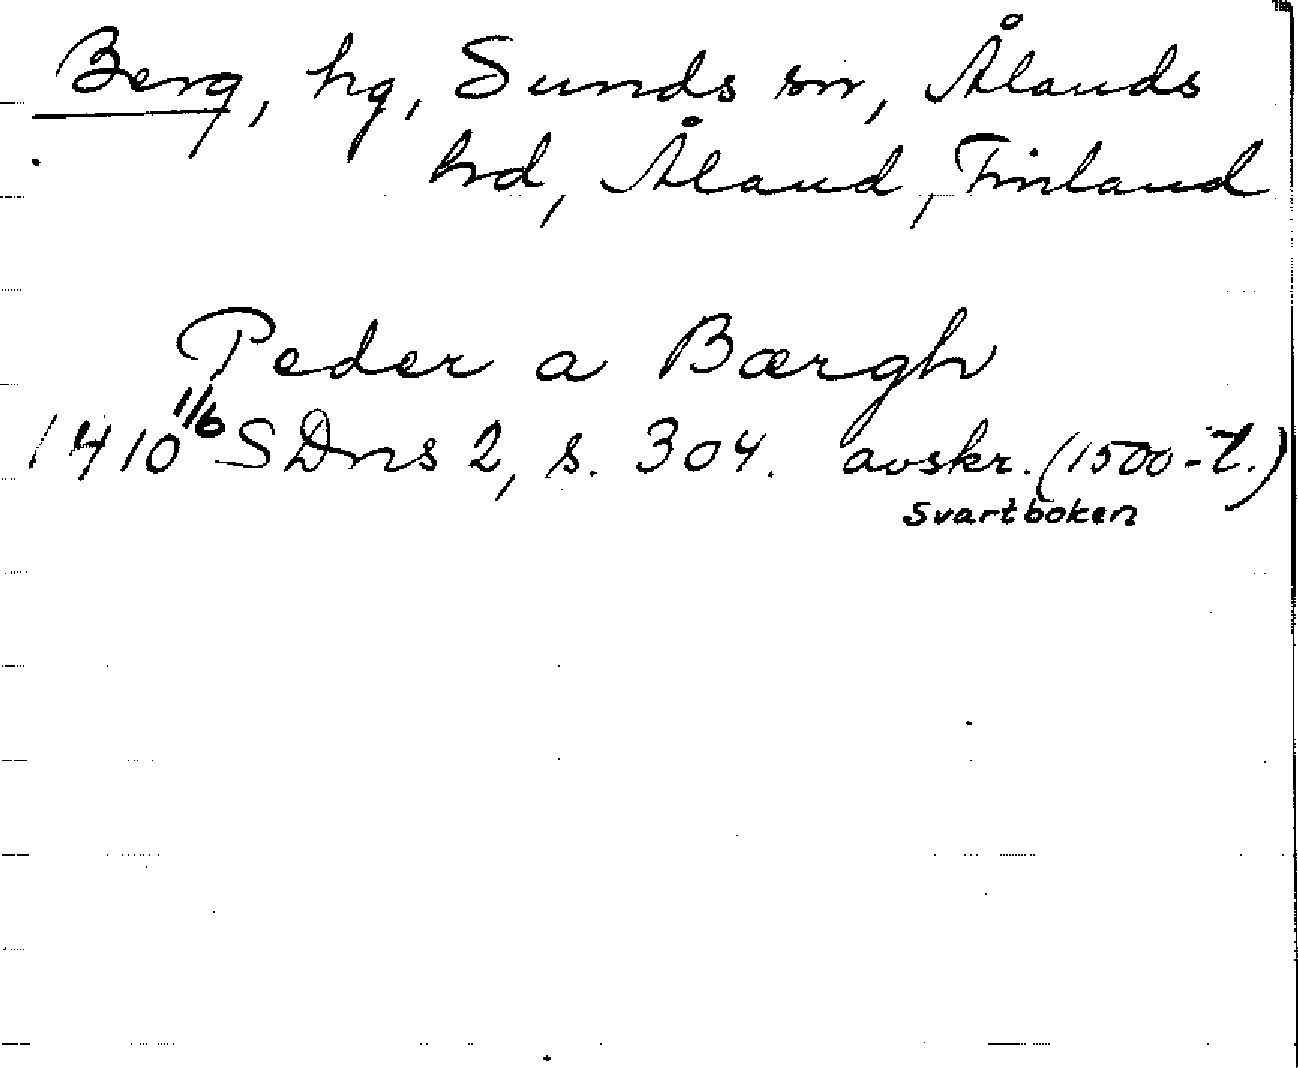 Berg, hg, Sunds sn, Ålands
hd, Åland, Finland
Peder a Bærgh
1410 1/6 SDns 2, s. 304. avskr. (1500-t.)
svartboken